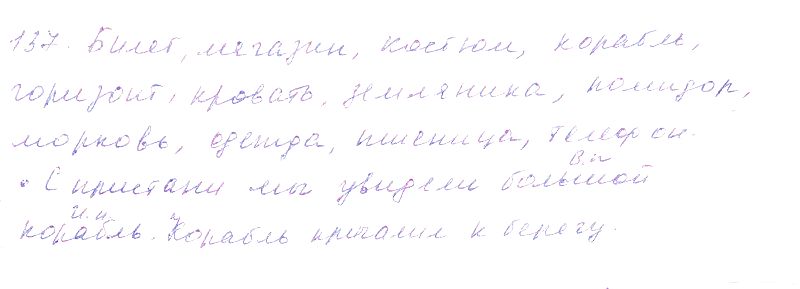 137. Билет, магазин, костюм, корабль,
горизонт, кровать, земляника, помидор,
морковь, одежда, пшеница, телефон.
В.п
• С пристани мы увидели большой
И.п.
корабль. Корабль причалил к берегу.